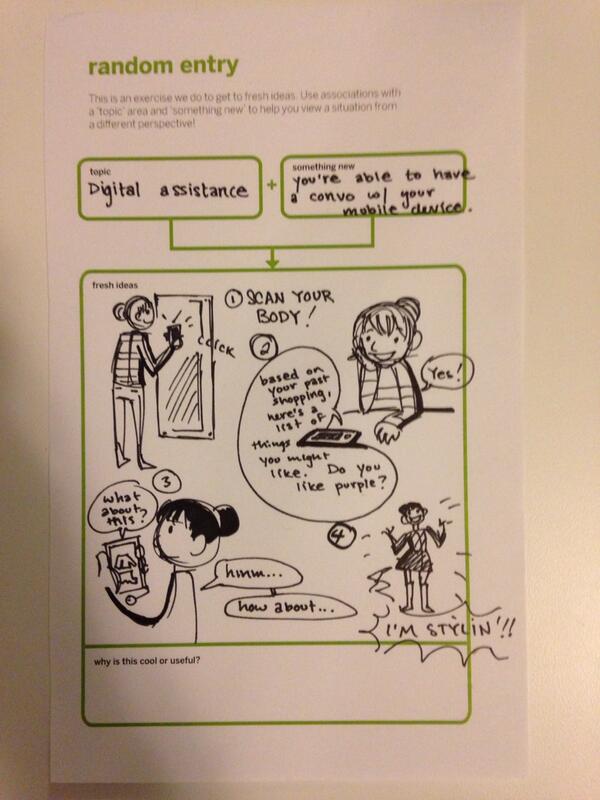 random entry
This is an exercise we do to get to fresh ideas. Use associations with
a 'topic' area and 'something new' to help you view a situation from
a different perspective!
topic
Digital assistance
+
something new
you're able to have
a convo w/ your
mobile device.
fresh ideas
① SCAN YOUR
BODY!
CLICK
②
based on
your past
shopping,
here's a
list of
things
you might
like. Do you
like purple?
Yes!
③
what
about
this?
hmm...
how about...
④
I'M STYLIN'!!
why is this cool or useful?